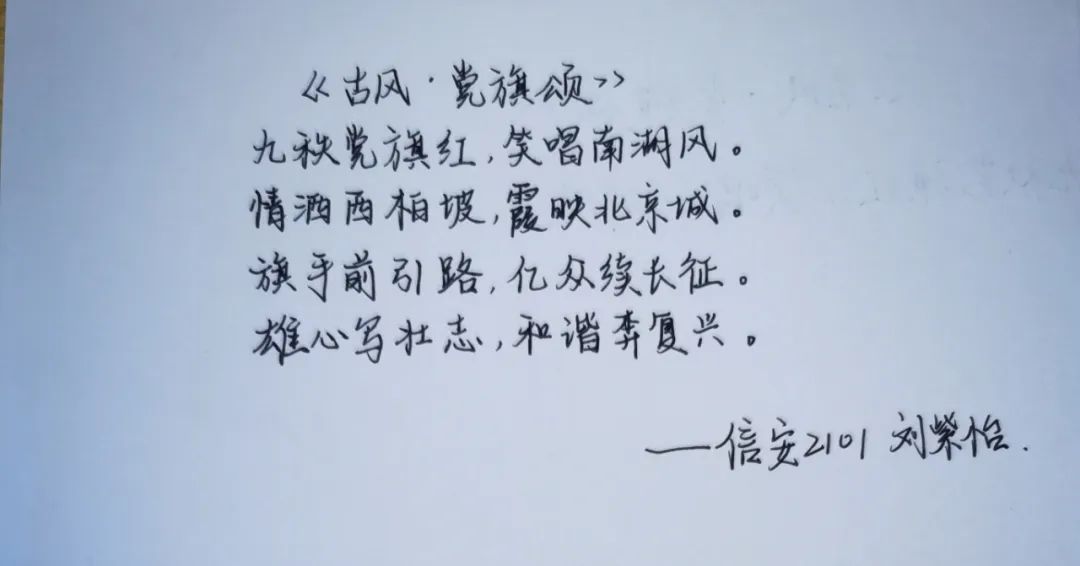 《古风·党旗颂》
九秩党旗红,笑唱南湖风。
情洒西柏坡,霞映北京城。
旗手前引路,亿众续长征。
雄心写壮志,和谐奔复兴。
——信安2101 刘紫怡.